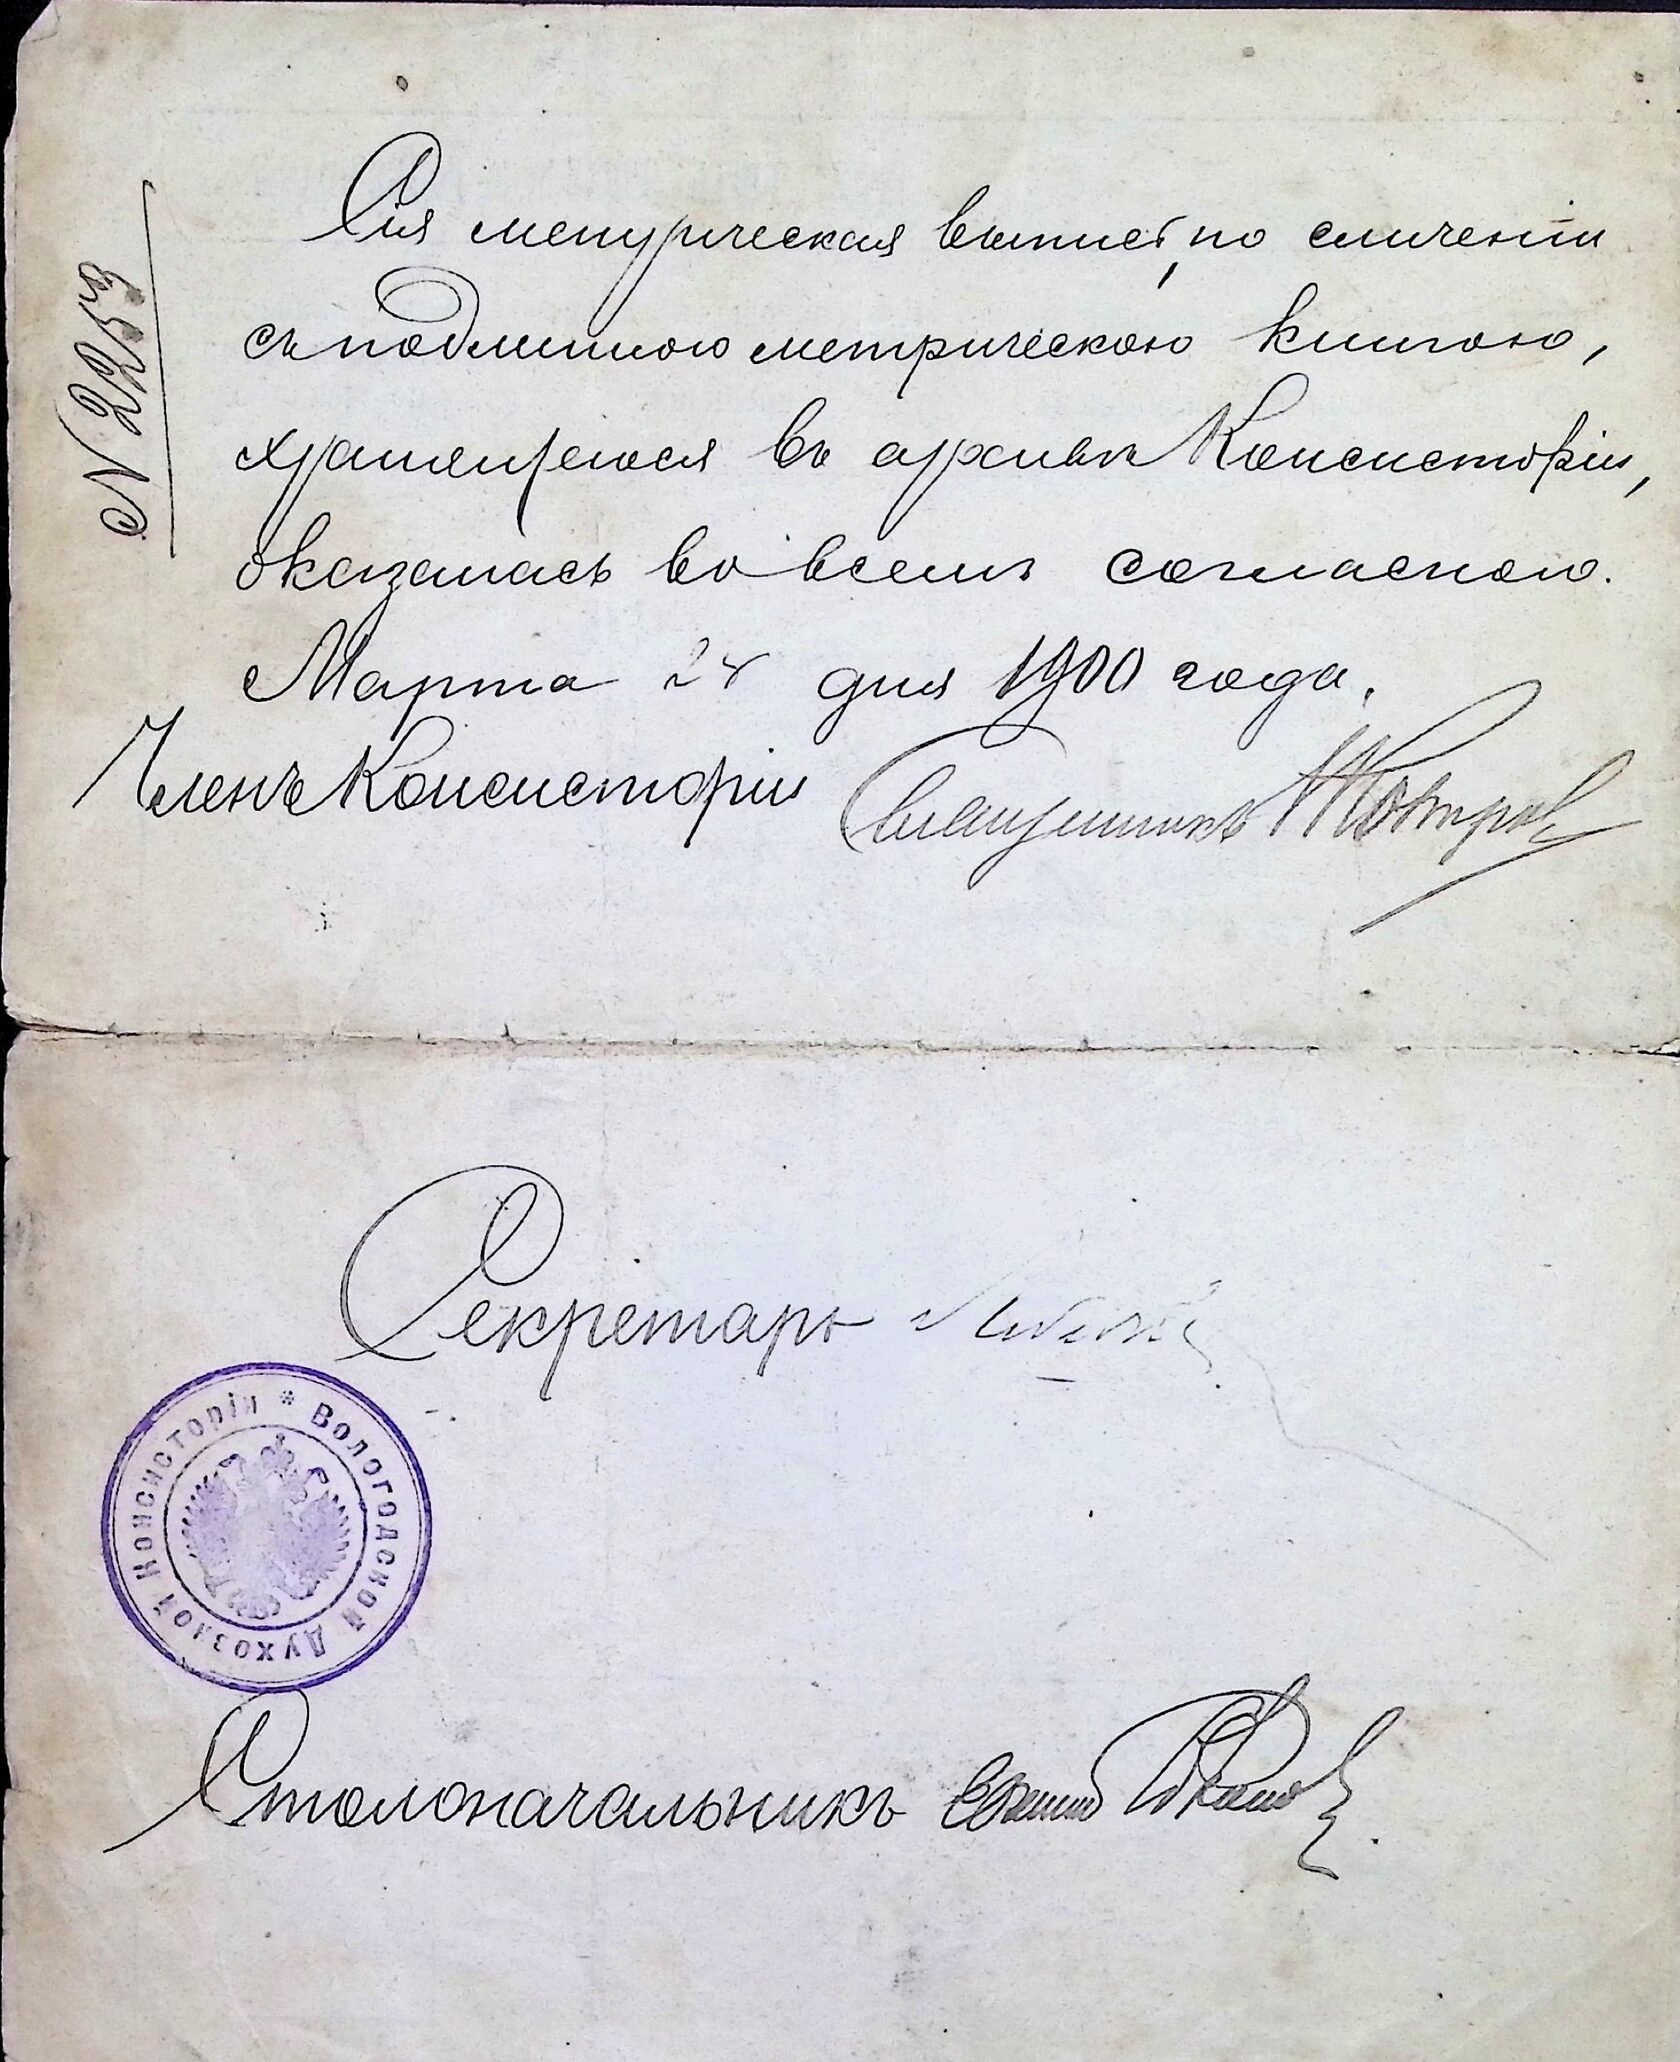 № 2253
Сія метрическая выпись, по сличеніи
съ подлинною метрическою книгою,
хранящеюся въ архивѣ Консисторіи,
оказалась во всемъ согласною.
Марта 28 дня 1900 года.
Членъ Консисторіи Священникъ
Секретарь
Вологодской Духовной Консисторіи *
Столоначальникъ